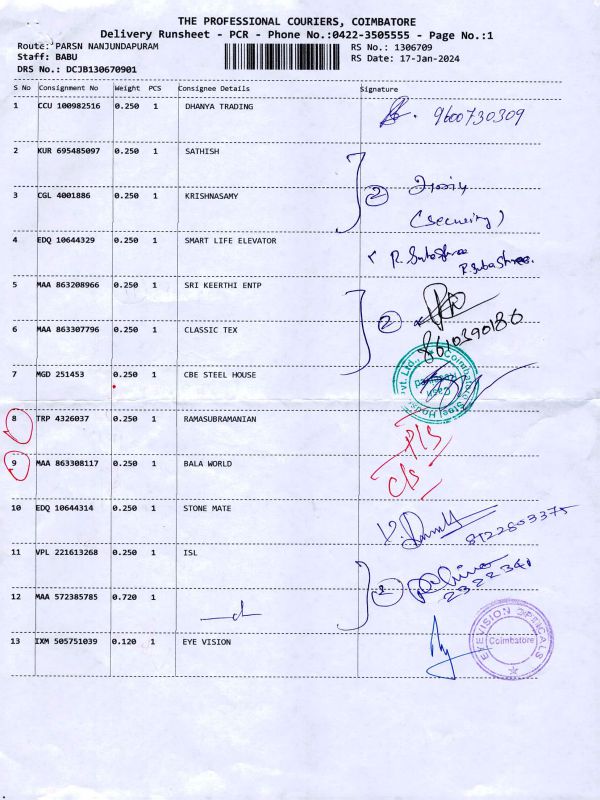 THE PROFESSIONAL COURIERS, COIMBATORE
Delivery Runsheet - PCR - Phone No.:0422-3505555 - Page No.:1
Route: PARSN NANJUNDAPURAM
RS No.: 1306709
Staff: BABU
RS Date: 17-Jan-2024
DRS No.: DCJB130670901
S No Consignment No Weight PCS Consignee Details Signature
1 CCU 100982516 0.250 1 DHANYA TRADING 9600730309
2 KUR 695485097 0.250 1 SATHISH
3 CGL 4001886 0.250 1 KRISHNASAMY 2
(Security)
4 EDQ 10644329 0.250 1 SMART LIFE ELEVATOR R. Subashree
R. Subashree.
5 MAA 863208966 0.250 1 SRI KEERTHI ENTP
6 MAA 863307796 0.250 1 CLASSIC TEX 2 8610390186
7 MGD 251453 0.250 1 CBE STEEL HOUSE
8 TRP 4326037 0.250 1 RAMASUBRAMANIAN P/S
9 MAA 863308117 0.250 1 BALA WORLD C/S
10 EDQ 10644314 0.250 1 STONE MATE 8122803375
11 VPL 221613268 0.250 1 ISL
12 MAA 572385785 0.720 1 2322341
13 IXM 505751039 0.120 1 EYE VISION
EYEVISION OPTICALS
Coimbatore